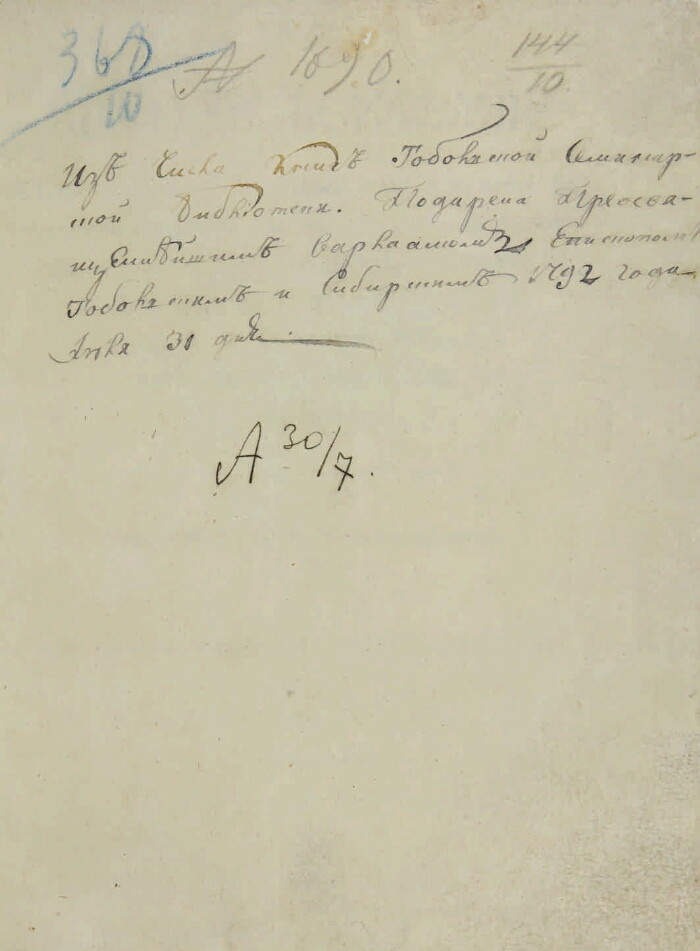 368/10 А 1890. 144/10.
Изъ Числа Книгъ Тобольской Семинар-
ской Библіотеки. Подарена Преосвя-
щеннѣйшимъ Варлаамомъ Епископомъ
Тобольскимъ и Сибирскимъ 1792 года
31 дня
А 30/7.